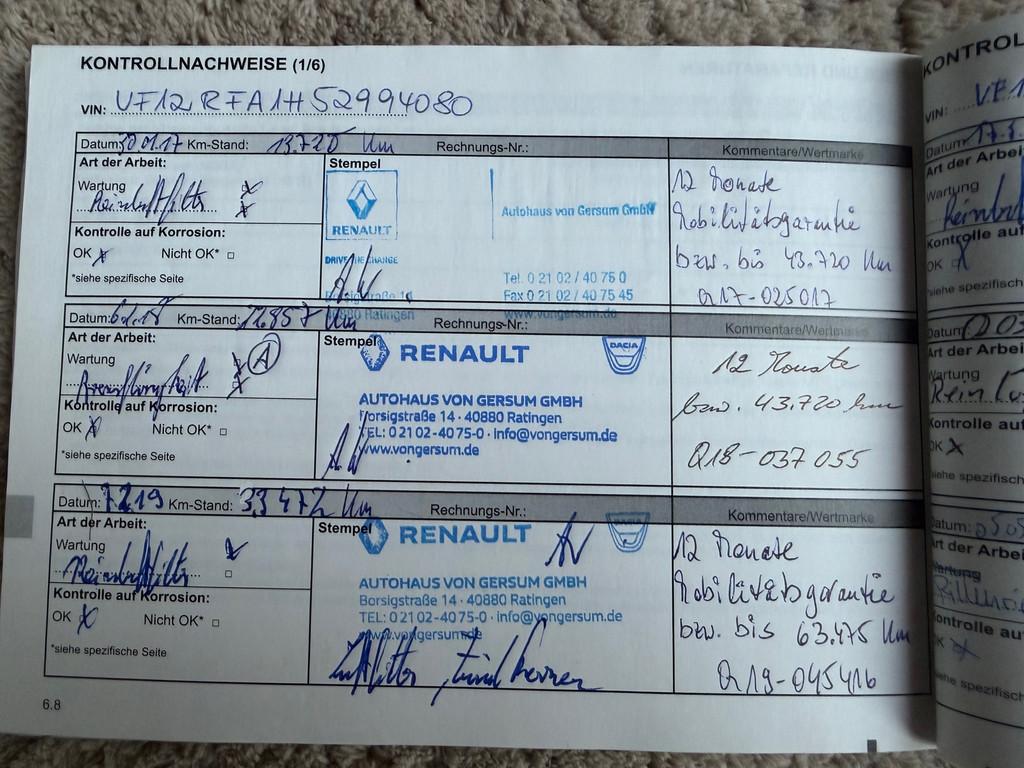 KONTROLLNACHWEISE (1/6)
VIN: VF12RFA1H52994080
Datum: 30.01.17 Km-Stand: 13.720 Km Rechnungs-Nr.: Kommentare/Wertmarke
Art der Arbeit:
Stempel
Wartung
Reinluftfilter
Kontrolle auf Korrosion:
OK Nicht OK*
*siehe spezifische Seite
RENAULT
DRIVE THE CHANGE
Autohaus von Gersum GmbH
Borsigstraße 14
40880 Ratingen
Tel. 0 21 02 / 40 75 0
Fax 0 21 02 / 40 75 45
www.vongersum.de
12 Monate
Mobilitätsgarantie
bzw. bis 43.720 Km
Q17-025017
Datum: Km-Stand: Km Rechnungs-Nr.: Kommentare/Wertmarke
Art der Arbeit:
Stempel
Wartung
A
Bremsflüssigkeit
Kontrolle auf Korrosion:
OK Nicht OK*
*siehe spezifische Seite
RENAULT
DACIA
AUTOHAUS VON GERSUM GMBH
Borsigstraße 14 · 40880 Ratingen
TEL: 0 21 02-40 75-0 · info@vongersum.de
www.vongersum.de
12 Monate
bzw. 43.720 km
Q18-037055
Datum: 7.2.19 Km-Stand: 33.472 Km Rechnungs-Nr.: Kommentare/Wertmarke
Art der Arbeit:
Stempel
Wartung
Reinluftfilter
Kontrolle auf Korrosion:
OK Nicht OK*
*siehe spezifische Seite
RENAULT
DACIA
AUTOHAUS VON GERSUM GMBH
Borsigstraße 14 · 40880 Ratingen
TEL: 0 21 02-40 75-0 · info@vongersum.de
www.vongersum.de
Luftfilter
12 Monate
Mobilitätsgarantie
bzw. bis 63.475 Km
Q19-045416
6.8
KONTROL
VIN: VF1
Datum:
Art der Arbei
Wartung
Kontrolle auf
OK
*siehe spezifisch
Datum:
Art der Arbei
Wartung
Kontrolle auf
OK
*siehe spezifisch
Datum:
Art der Arbei
Wartung
Kontrolle au
OK
*siehe spezifisch